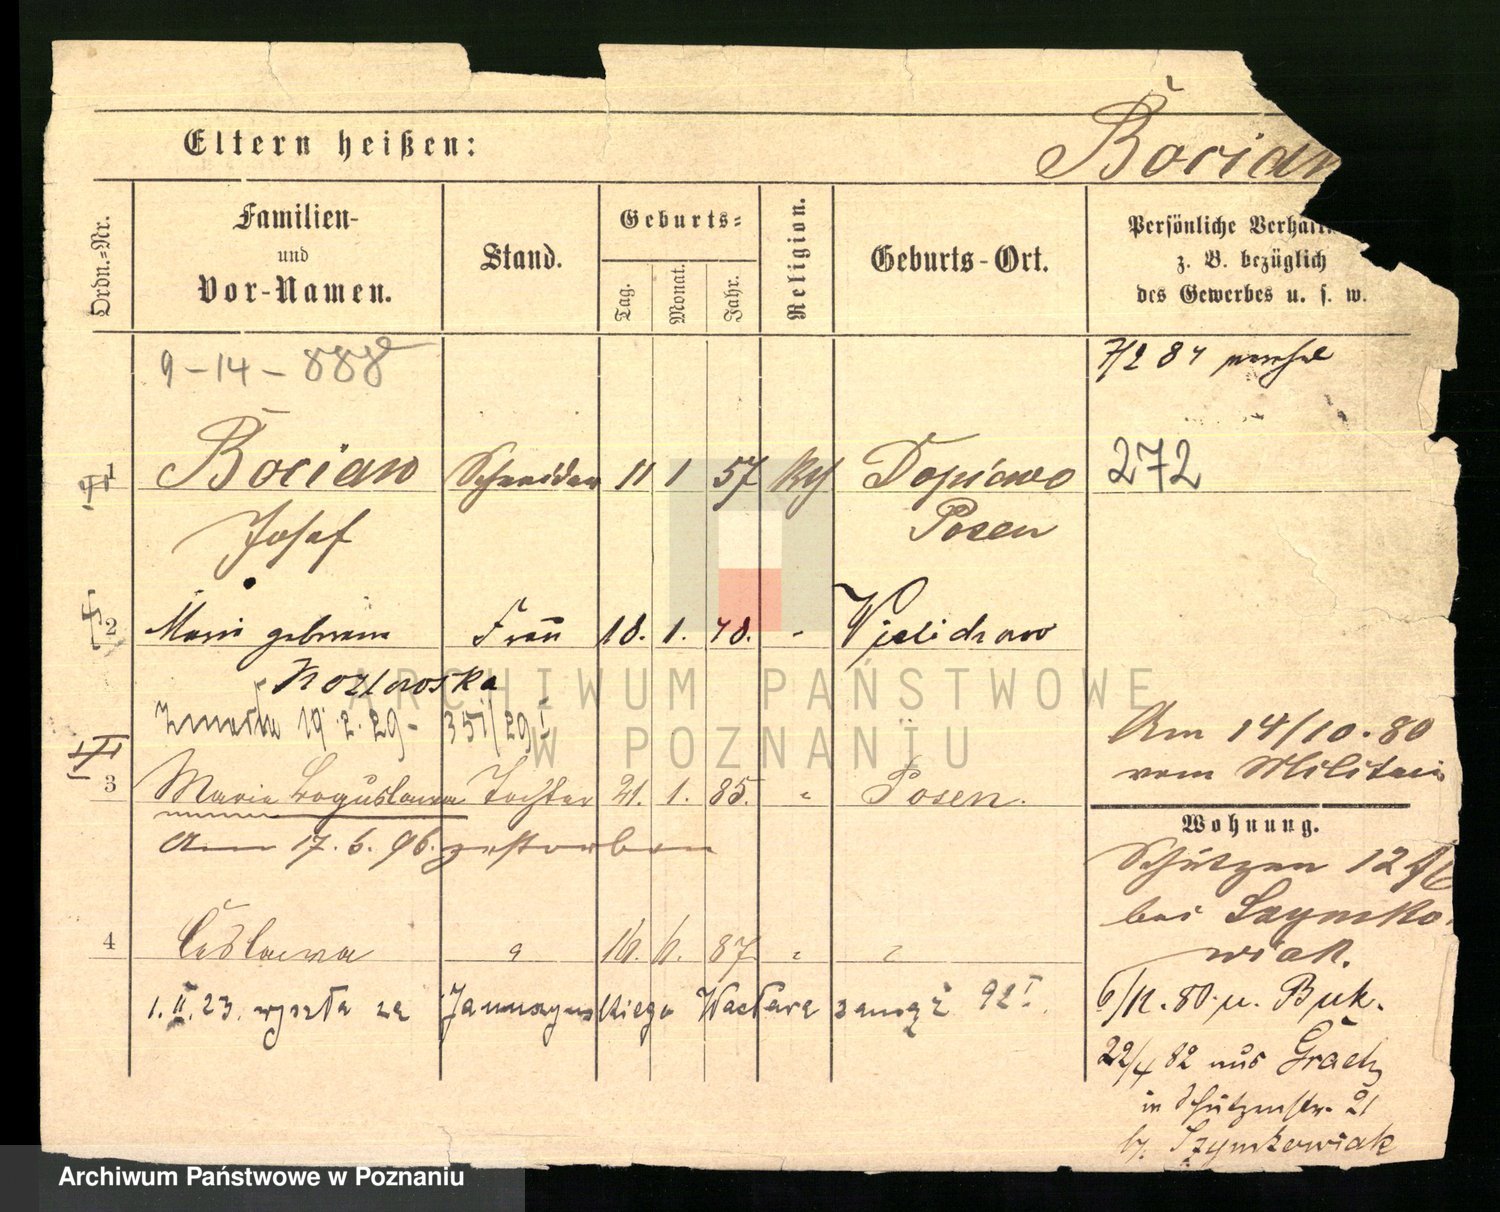 Eltern heißen:
Bocian
Ordn.-Nr.
Familien-
und
Vor-Namen.
Stand.
Geburts-
Tag.
Monat.
Jahr.
Religion.
Geburts-Ort.
Persönliche Verhält
z. B. bezüglich
des Gewerbes u. s. w.
9-14-888
7/2 84
1 Bocian Schneider 11 1 57 Kth Dopiewo 272
Josef Posen
2 Marie geborene Frau 18. 1. 48. Wielichowo
Kozlowska
Zmarła 19.2.29- 351/29
3 Maria Bogusława Tochter 21. 1. 85. " Posen.
Am 17.6.96. gestorben
Am 14/10.80
vom Militair
Wohnung.
Schützen 12
bei Szymko-
wiak.
4 Česlawa " 16. 6. 87 " "
1.II.23. wyszła za Wacława zamąż 92
6/12.80. n. Buk.
22/4 82 aus Graetz
in Schützenstr. 21
b. Szymkowiak
ARCHIWUM PAŃSTWOWE
W POZNANIU
Archiwum Państwowe w Poznaniu